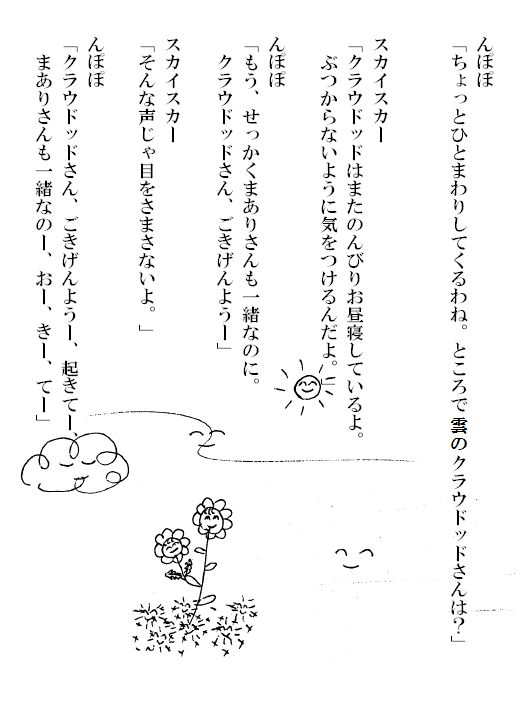 んぽぽ
「ちょっとひとまわりしてくるわね。ところで雲のクラウドッドさんは？」
スカイスカー
「クラウドッドはまたのんびりお昼寝しているよ。
ぶつからないように気をつけるんだよ。
んぽぽ
「もう、せっかくまありさんも一緒なのに。
クラウドッドさん、ごきげんようー」
スカイスカー
「そんな声じゃ目をさまさないよ。」
んぽぽ
「クラウドッドさん、ごきげんようー、起きてー、
まありさんも一緒なのー、おー、きー、てー」